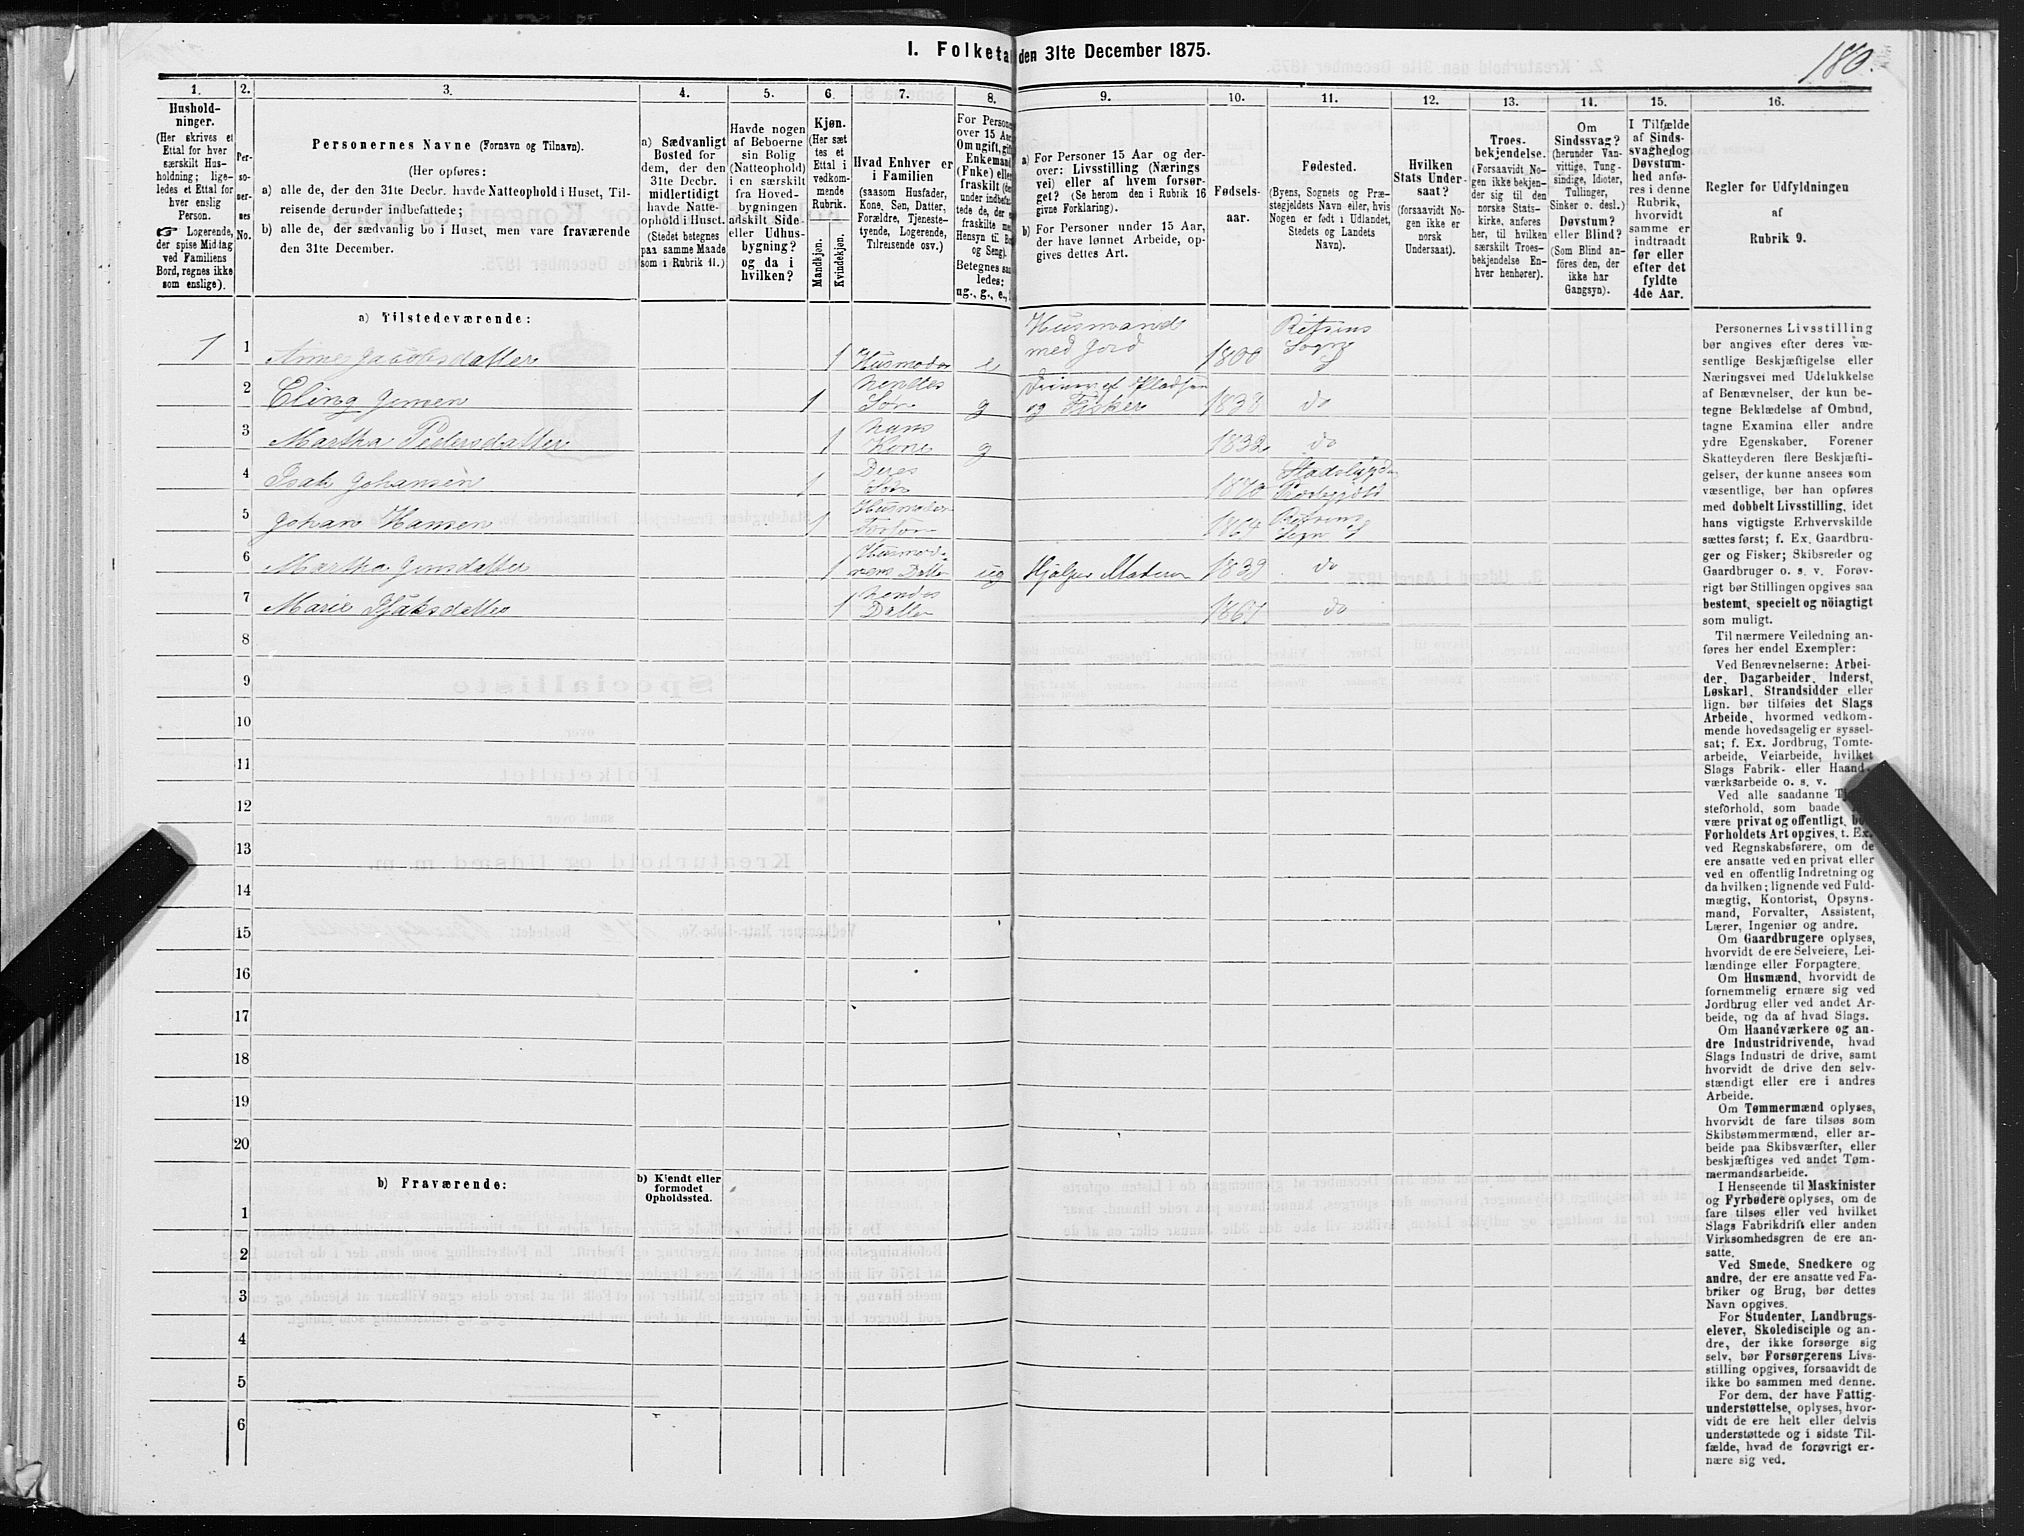 I. Folketal den 31te December 1875.
180.
1.
Hushold-
ninger.
(Her skrives et
Ettal for hver
særskilt Hus-
holdning; lige-
ledes et Ettal for
hver enslig
Person.
☞ Logerende,
der spise Middag
ved Familiens
Bord, regnes ikke
som enslige).
2.
Per-
so-
ner-
nes
No.
3.
Personernes Navne (Fornavn og Tilnavn).
(Her opføres:
a) alle de, der den 31te Decbr. havde Natteophold i Huset, Til-
reisende derunder indbefattede;
b) alle de, der sædvanlig bo i Huset, men vare fraværende
den 31te December.
4.
a) Sædvanligt
Bosted for
dem, der den
31te Decbr.
midlertidigt
havde Natte-
ophold i Huset.
(Stedet betegnes
paa samme Maade
som i Rubrik 11.)
5.
Havde nogen
af Beboerne
sin Bolig
(Natteophold)
i en særskilt
fra Hoved-
bygningen
adskilt Side-
eller Udhus-
bygning?
og da i
hvilken?
6.
Kjøn.
(Her sæt
tes et
Ettal i
vedkom-
mende
Rubrik.
Mandkjøn.
Kvindekjøn.
7.
Hvad Enhver er
i Familien
(saasom Husfader,
Kone, Søn, Datter,
Forældre, Tjeneste-
tyende, Logerende,
Tilreisende osv.)
8.
For Persone
over 15 Aar
Om ugift, gift
Enkemand
(Fuke) eller
fraskilt (de
under indbefat
tede de, der e
fraskilte me
Hensyn til Bo
og Seng).
Betegnes saa
ledes:
ug., g., e.,
9.
a) For Personer 15 Aar og der-
over: Livsstilling (Nærings
vei) eller af hvem forsør-
get? (Se herom den i Rubrik 16
givne Forklaring).
b) For Personer under 15 Aar,
der have lønnet Arbeide, op-
gives dettes Art.
10.
Fødsels-
aar.
11.
Fødested.
(Byens, Sognets og Præ-
stegjeldets Navn eller, hvis
Nogen er født i Udlandet,
Stedets og Landets
Navn).
12.
Hvilken
Stats Under-
saat?
(forsaavidt No-
gen ikke er
norsk
Undersaat).
13.
Troes-
bekjendelse.
(Forsaavidt No-
gen ikke bekjen-
der sig til den
norske Stats-
kirke, anføres
her, til hvilken
særskilt Troes-
bekjendelse En-
hver henhører).
14.
Om
Sindssvag?
(herunder Van-
vittige, Tung-
sindige, Idioter,
Tullinger,
Sinker o. desl.)
Døvstum?
eller Blind?
(Som Blind an-
føres den, der
ikke har
Gangsyn).
15.
I Tilfælde
af Sinds-
svaghed og
Døvstum-
hed anfø-
res i denne
Rubrik,
hvorvidt
samme er
indtraadt
før eller
efter det
fyldte
4de Aar.
16.
Regler for Udfyldningen
af
Rubrik 9.
a) Tilstedeværende:
1 1 Anne Jacobsdatter 1 Husmoder e Husmand med Jord 1800 Ritsens Sogn
2 Eling Jensen 1 hendes Søn g og Fisker 1838 do
3 Martha Pedersdatter 1 hans Kone g 1832 do
4 Isak Johansen 1 Deres Søn 1870 Stadsbygden
5 Johan Hansen 1 1864 Ritsens Sogn
6 Martha Jensdatter 1 Datter ug Hjælper Moderen 1839 do
7 Marie 1 hendes Datter 1867 do
8
9
10
11
12
13
14
15
16
17
18
19
20
b) Fraværende:
b) Kjendt eller
formodet
Opholdssted.
1
2
3
4
5
6
Personernes Livsstilling
bør angives efter deres væ-
sentlige Beskjæftigelse eller
Næringsvei med Udelukkelse
af Benævnelser, der kun be-
tegne Beklædelse af Ombud,
tagne Examina eller andre
ydre Egenskaber. Forener
Skatteyderen flere Beskjæfti-
gelser, der kunne ansees som
væsentlige, bør han opføres
med dobbelt Livsstilling, idet
hans vigtigste Erhvervskilde
sættes først; f. Ex. Gaardbru-
ger og Fisker; Skibsreder og
Gaardbruger o. s. v. Forøv-
rigt bør Stillingen opgives saa
bestemt, specielt og nöiagtigt
som muligt.
Til nærmere Veiledning an-
føres her endel Exempler:
Ved Benævnelserne: Arbei-
der, Dagarbeider, Inderst,
Løskarl, Strandsidder eller
lign. bør tilføies det Slags
Arbeide, hvormed vedkom-
mende hovedsagelig er syssel-
sat; f. Ex. Jordbrug, Tomte-
arbeide, Veiarbeide, hvilket
Slags Fabrik- eller Haand-
værksarbeide o. s. v.
Ved alle saadanne
steforhold, som baade
være privat og offentligt, bør
Forholdets Art opgives, t. Ex.
ved Regnskabsførere, om de
ere ansatte ved en privat eller
ved en offentlig Indretning og
da hvilken; lignende ved Fuld-
mægtig, Kontorist, Opsyns-
mand, Forvalter, Assistent,
Lærer, Ingeniør og andre.
Om Gaardbrugere oplyses,
hvorvidt de ere Selveiere, Lei-
lændinge eller Forpagtere.
Om Husmænd, hvorvidt de
fornemmelig ernære sig ved
Jordbrug eller ved andet Ar-
beide, og da af hvad Slags.
Om Haandværkere og an-
dre Industridrivende, hvad
Slags Industri de drive, samt
hvorvidt de drive den selv-
stændigt eller ere i andres
Arbeide.
Om Tømmermænd oplyses,
hvorvidt de fare tilsøs som
Skibstømmermænd, eller ar-
beide paa Skibsværfter, eller
beskjæftiges ved andet Tøm-
mermandsarbeide.
I Henseende til Maskinister
og Fyrbødere oplyses, om de
fare tilsøs eller ved hvilket
Slags Fabrikdrift eller anden
Virksomhedsgren de ere an-
satte.
Ved Smede, Snedkere og
andre, der ere ansatte ved Fa-
briker og Brug, bør dettes
Navn opgives.
For Studenter, Landbrugs-
elever, Skoledisciple og an-
dre, der ikke forsørge sig
selv, bør Forsørgerens Livs-
stilling opgives, forsaavidt de
ikke bo sammen med denne.
For dem, der have Fattig-
understøttelse, oplyses, hvor-
vidt de ere helt eller delvis
understøttede og i sidste Til-
fælde, hvad de forøvrigt er-
nære sig ved.